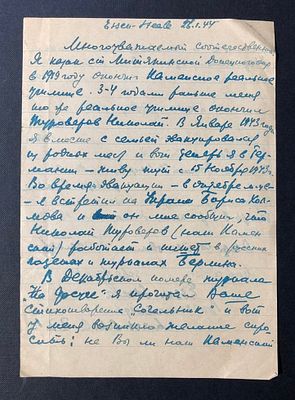 Эссен-Heale 28.1.44
Многоуважаемый соотечественник
Я казак ст. Митякинской Донецкого округа
в 1919 году окончил Каменское реальное
училище. 3-4 годами раньше меня
то же реальное училище окончил
Туроверов Николай. В Январе 1943 года
я вместе с семьей эвакуировался
из родных мест и вот теперь я в Гер-
мании - живу тут с 15 Ноября 1943 г.
Во время эвакуации - в октябре м-це
- я встретил Бориса
и он мне сообщил, что
Николай Туроверов (наш Камен-
ской) работает и пишет в русских
газетах и журналах Берлина.
В Декабрьском номере журнала
"На досуге" я прочитал Ваше
стихотворение "Сочельник" и вот
у меня возникло желание спро-
сить: не Вы ли наш Каменский